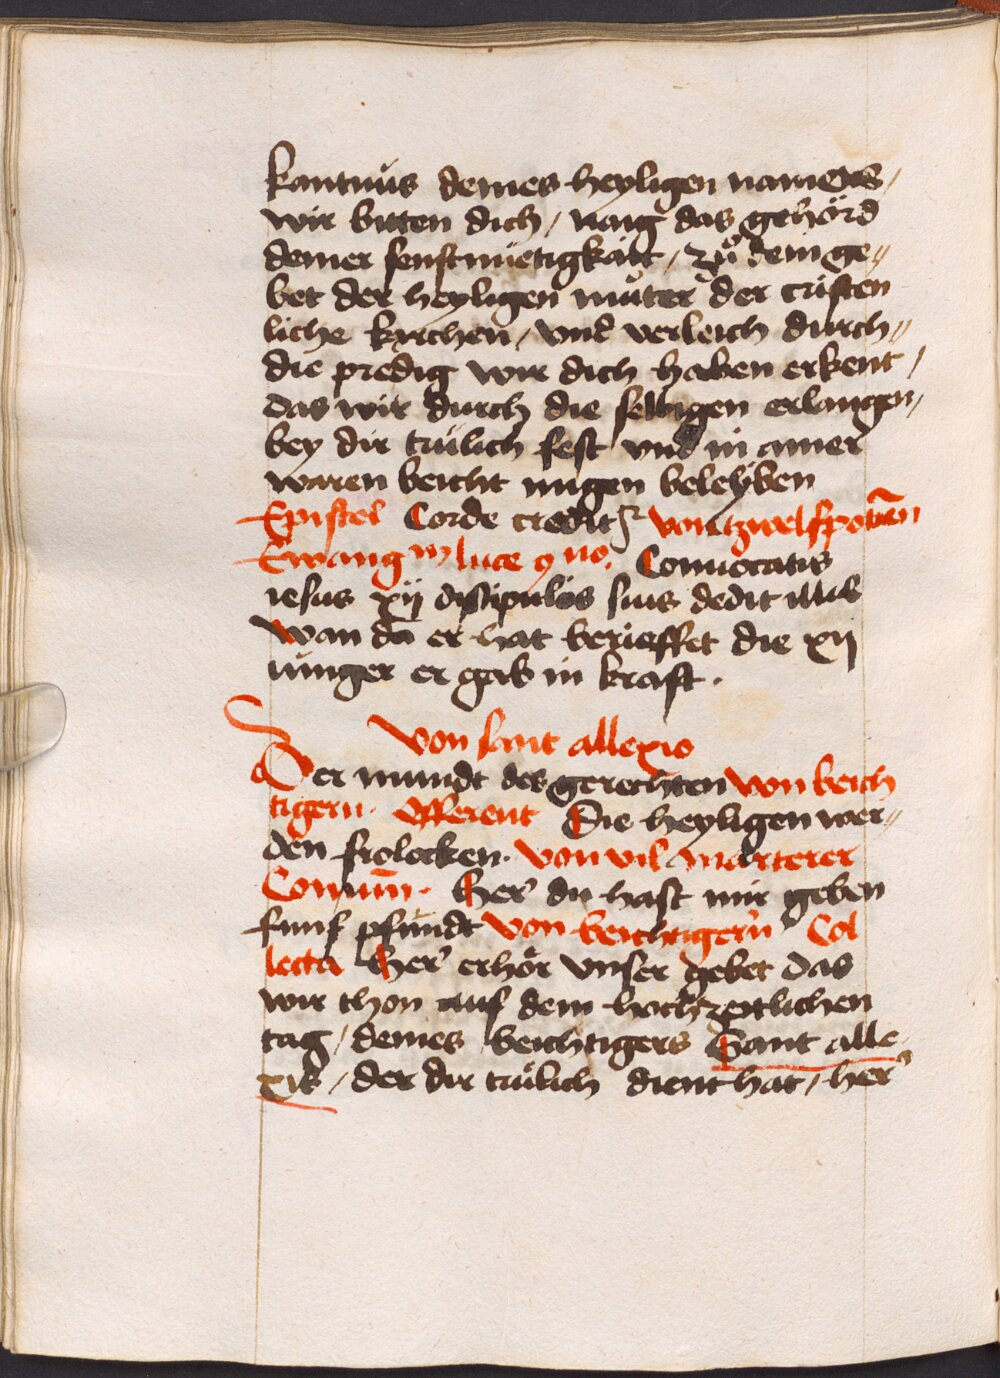 kantnüs deines heyligen namens /
wir bitten dich / naig das gehörd
deiner senftmüetigkait / zů dem ge⸗
bet der heyligen můter der cristen
liche kyrchen / vnd verleich durch⸗
die predig wir dich haben erkent /
das wir durch die selbigen erlangen /
bey dir träulich fest vnd in ainer
waren beicht mügen beleyben
Epistel Corde credit von
Ewang luce Conuocatis
iesus xij discipulis suis dedit illis
Wan da er hat berieffet die xij
iünger er gab in kraft .
von sant allexio
Der mundt des gerechten von beich
tigern . Offerent Die heyligen wer⸗
den frolocken . von vil marterer
Comun̄ . Her du hast mir geben
fünf pfündt von beichtigern Col
lecta Her erhör vnser gebet das
wir thon auf dem hochzeitlichen
tag / deines beichtigers Sant alle
xis / der dir träulich dient hat / her